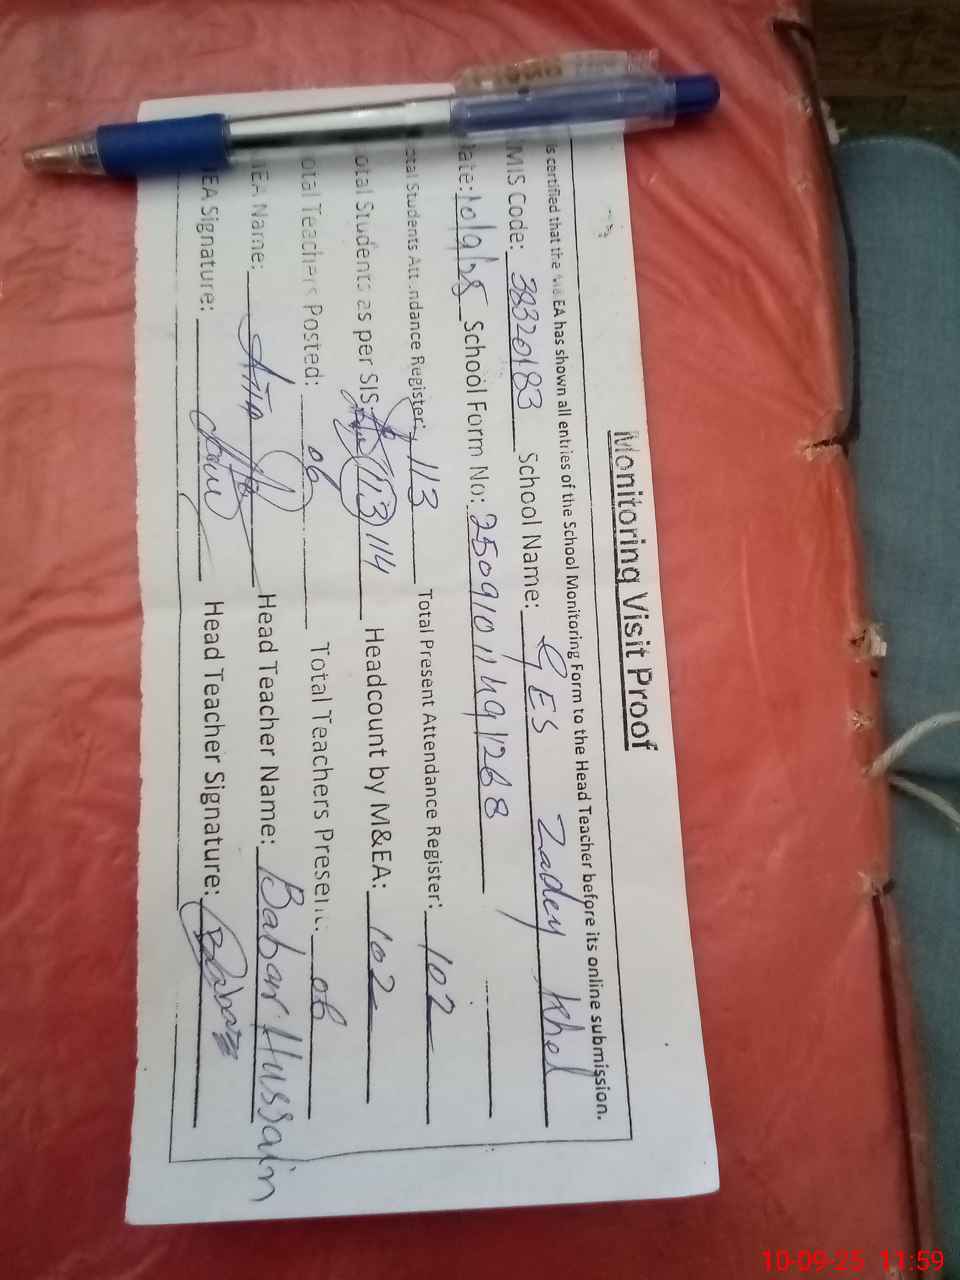 Monitoring Visit Proof
is certified that the M&EA has shown all entries of the School Monitoring Form to the Head Teacher before its online submission.
MIS Code: 38320183 School Name: GES Zadey Khel
ate: 10/9/25 School Form No: 25091011491268
otal Students Attendance Register: 113 Total Present Attendance Register: 102
otal Students as per SIS: 113 114 Headcount by M&EA: 102
otal Teachers Posted: 06 Total Teachers Present: 06
EA Name: Head Teacher Name: Babar Hussain
EA Signature: Head Teacher Signature: Babar
10-09-25 11:59